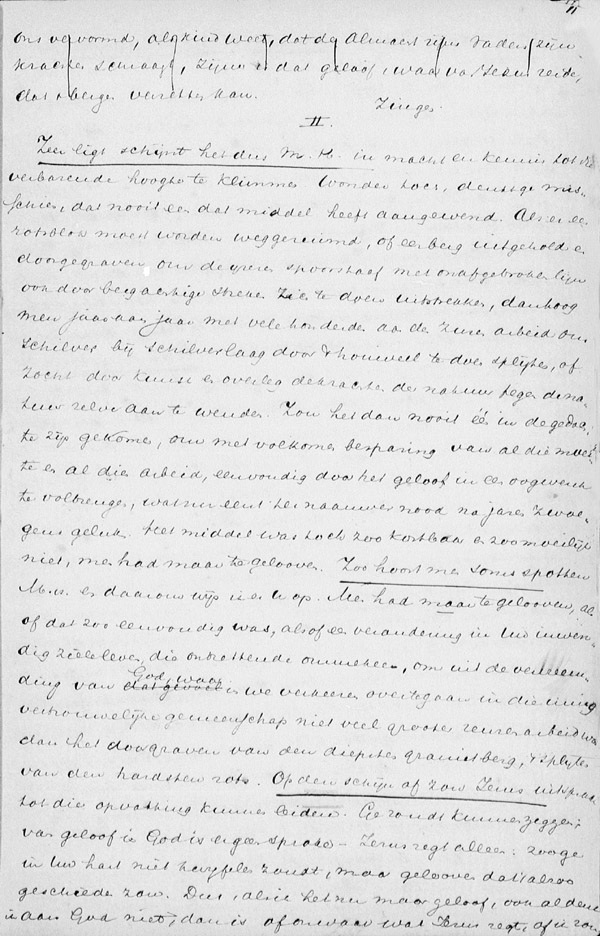 11
ons vervormd, als kind weet, dat de Almacht zijns Vaders zijn
krachten schraagt, zijn is dat geloof, waarvan Jezus zeide,
dat 't bergen verzetten kan.
Zingen.
II.
Zeer ligt schijnt het dus M. H. in macht en kennis tot
verbazende hoogte te klimmen. Wonder toch, denkt ge mis-
schien, dat nooit een dat middel heeft aangewend. Als er een
rotsblok moest worden weggeruimd, of een berg uitgehold en
doorgegraven, om de ijzeren spoorstaaf met onafgebroken lijn
ook door bergachtige streken zich te doen uitstrekken, dan toog
men jaar aan jaar met vele honderden aan de zure arbeid om
schilver bij schilverlaag door 't houweel te doen splijten, of
zocht door kunst en overleg de krachten der natuur tegen de na-
tuur zelve aan te wenden. Zou het dan nooit één in de gedach-
te zijn gekomen, om met volkomen besparing van al die moei-
te en al dien arbeid, eenvoudig door het geloof in een oogwenk
te volbrengen, wat nu eerst ter naauwer nood na jaren zwoe-
gens gelukt. Het middel was toch zoo kostbaar en zoo moeilijk
niet, men had maar te gelooven. Zoo hoort men soms spotten
M. H. en daarom wijs ik er u op. Men had maar te gelooven, als
of dat zoo eenvoudig was, alsof een verandering in uw inwen-
dig zieleleven, die ontzettende ommekeer, om uit de vervreem-
ding van God, waar in we verkeeren over te gaan in die innig
vertrouwelijke gemeenschap niet veel grooter reuzenarbeid was
dan het doorgraven van den diepsten granietberg, 't splijten
van den hardsten rots. Op den schijn af zou Jezus uitspraak
tot die opvatting kunnen leiden. Ge zoudt kunnen zeggen:
van geloof in God is er geen sprake - Jezus zegt alleen: zoo ge
in uw hart niet twijfelen zoudt, maar gelooven dat 't alzoo
geschieden zou. Dus, als ik het nu maar geloof, ook al denk
ik aan God niet, dan is of onwaar wat Jezus zegt, of ik zou